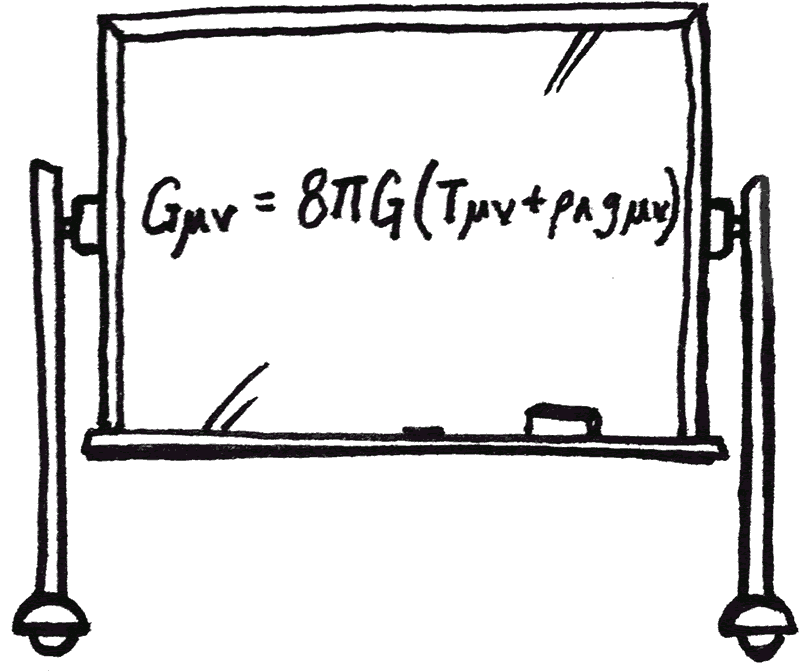 Gμν = 8πG(Tμν + ρΛ gμν)